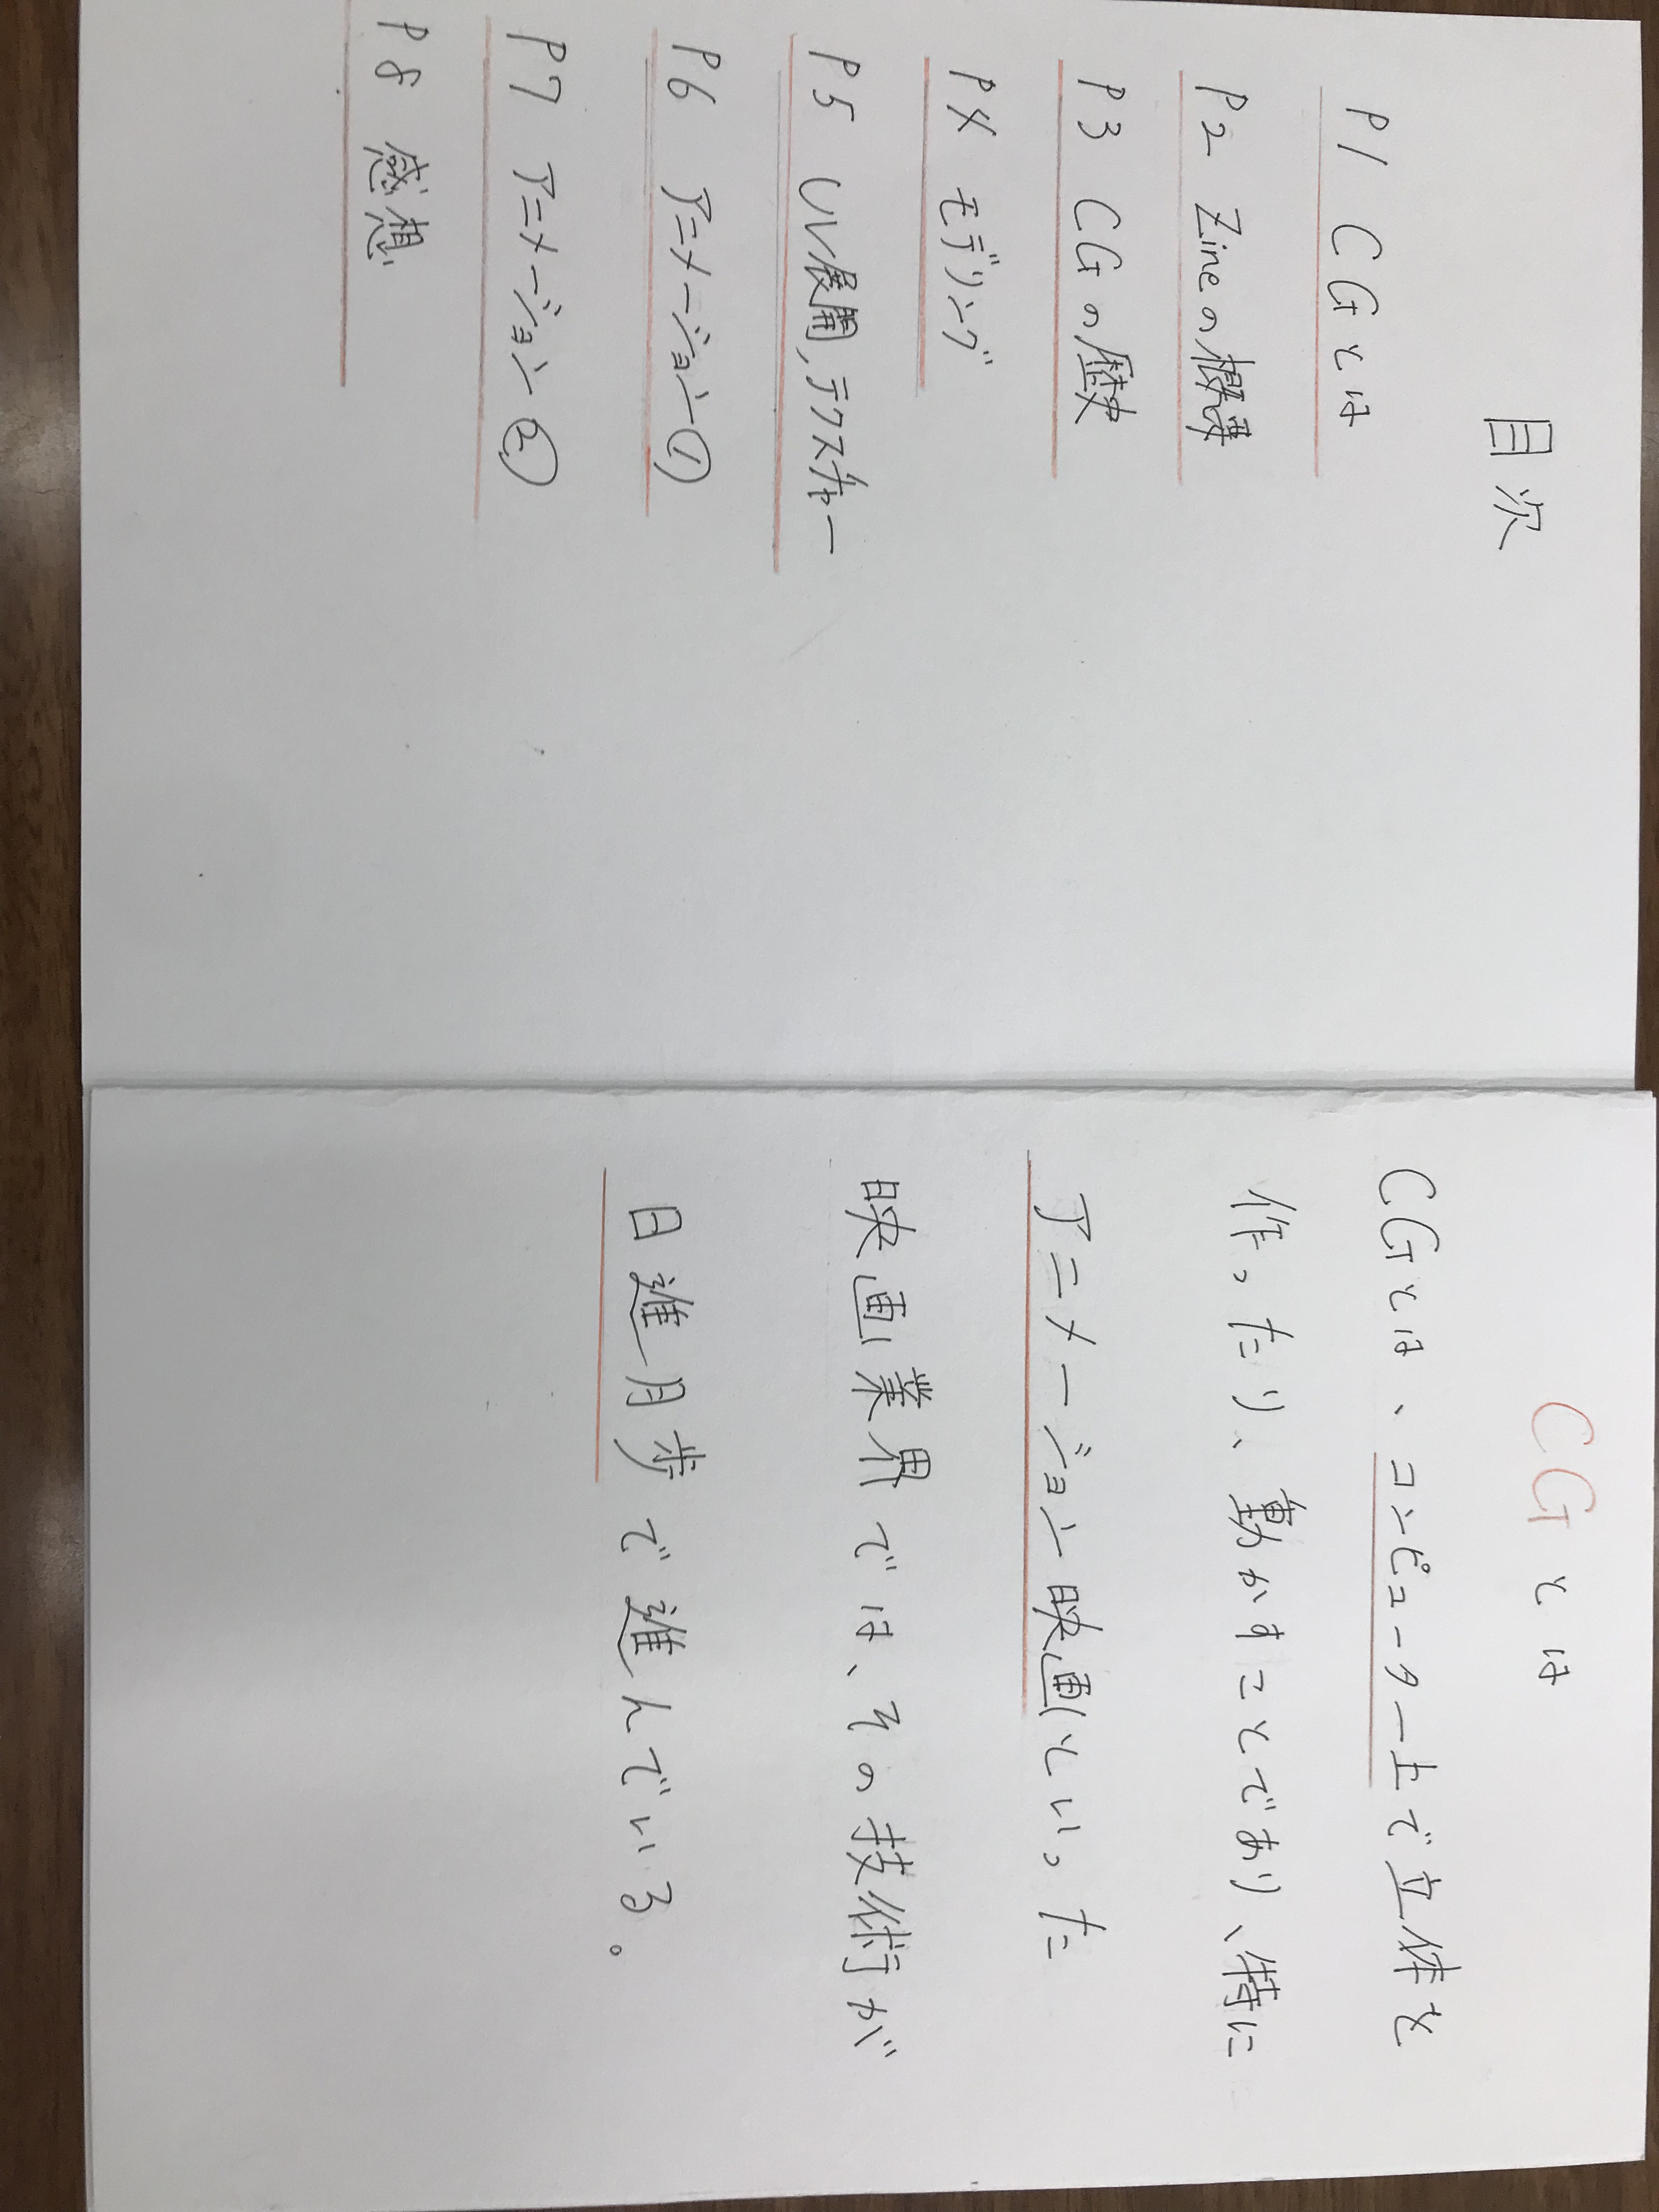 目次
P1 CGとは
P2 Zineの概要
P3 CGの歴史
P4 モデリング
P5 UV展開,テクスチャー
P6 アニメーション①
P7 アニメーション②
P8 感想
CGとは
CGとは、コンピューター上で立体を
作ったり、動かすことであり、特に
アニメーション映画といった
映画業界では、その技術が
日進月歩で進んでいる。